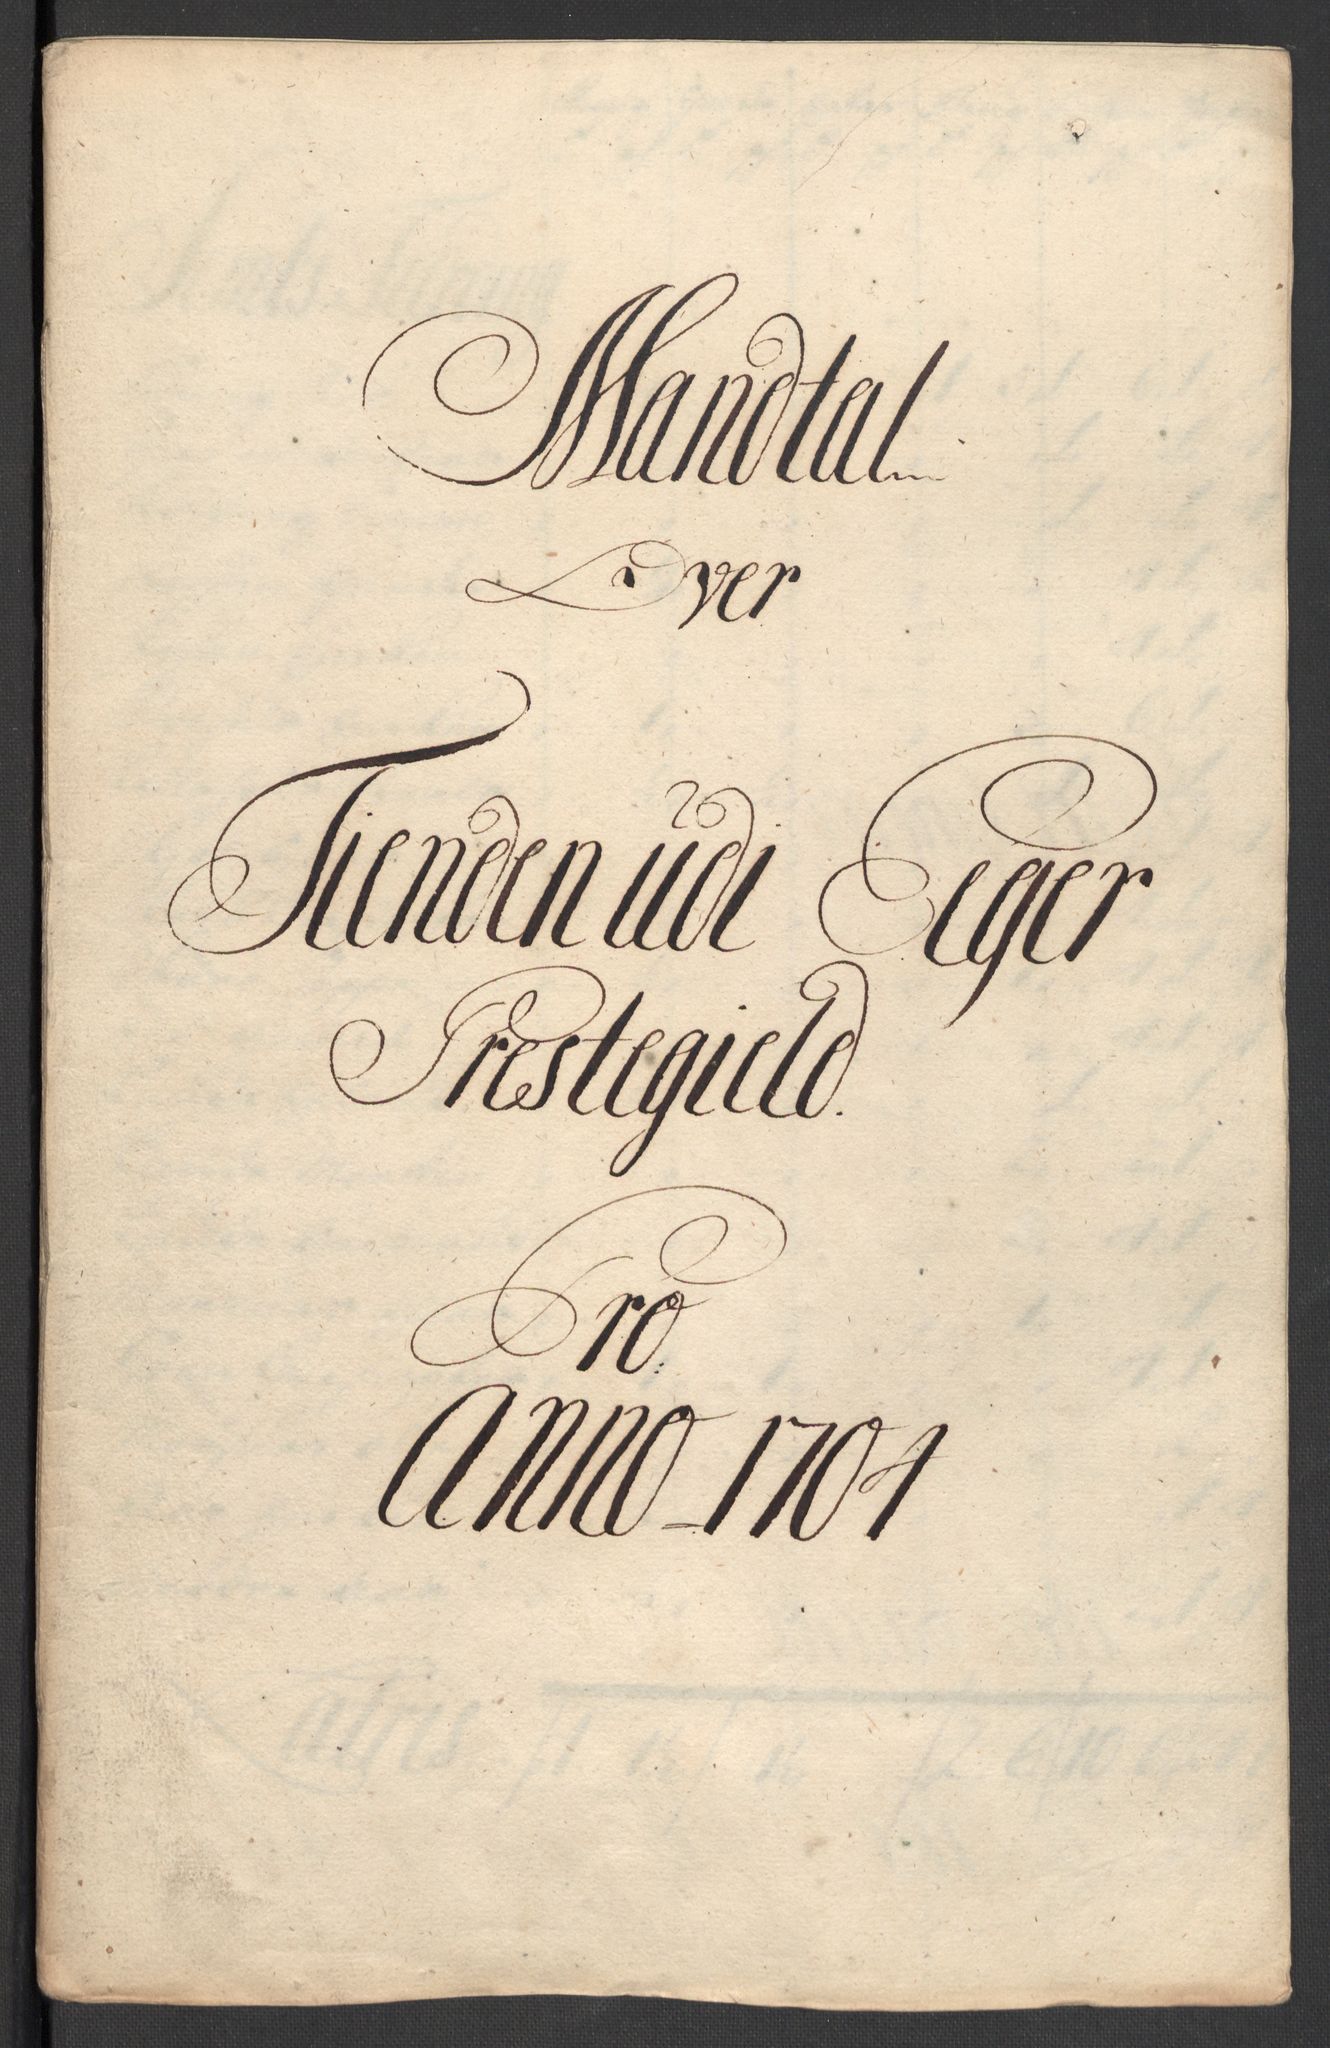 Mandtal
Over
Tienden udi Eger
Prestegield.
Pro:
Anno 1704